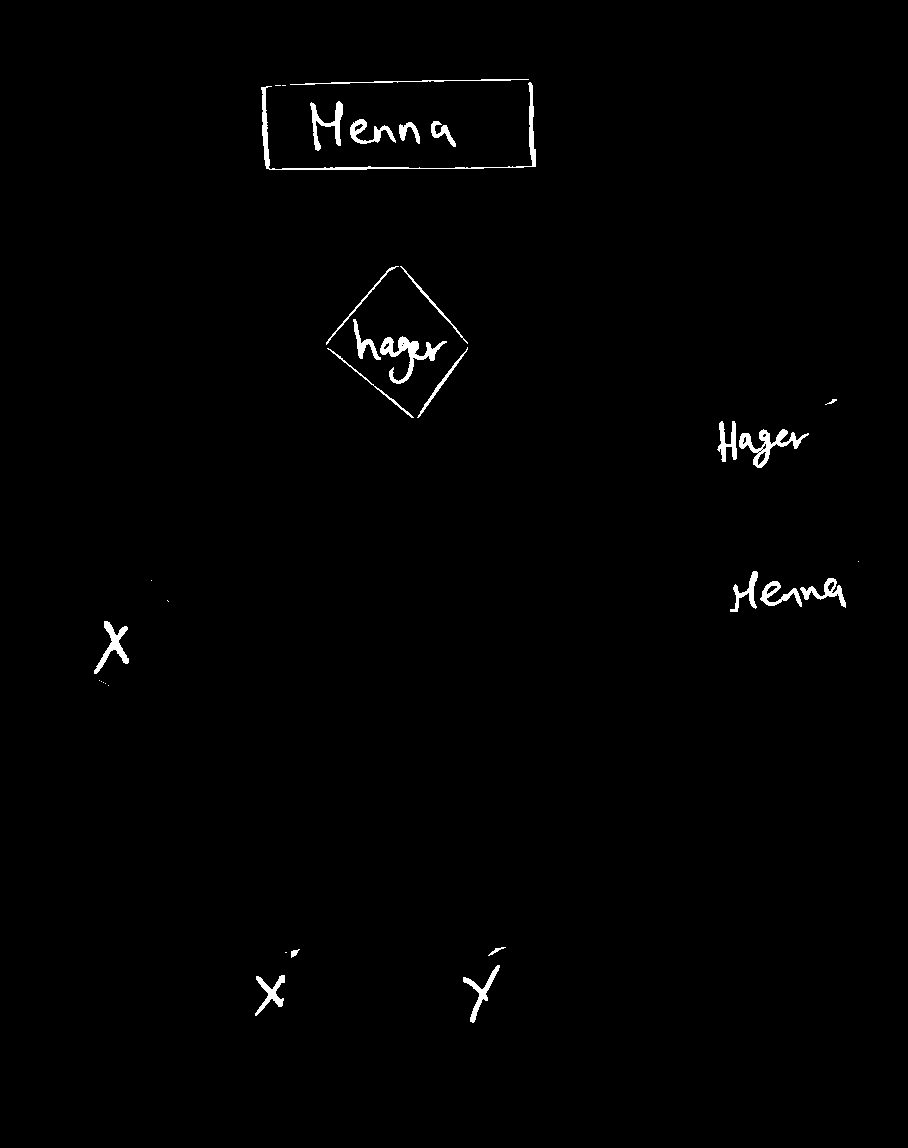 Menna
hager
Hager
Menna
X
X
Y